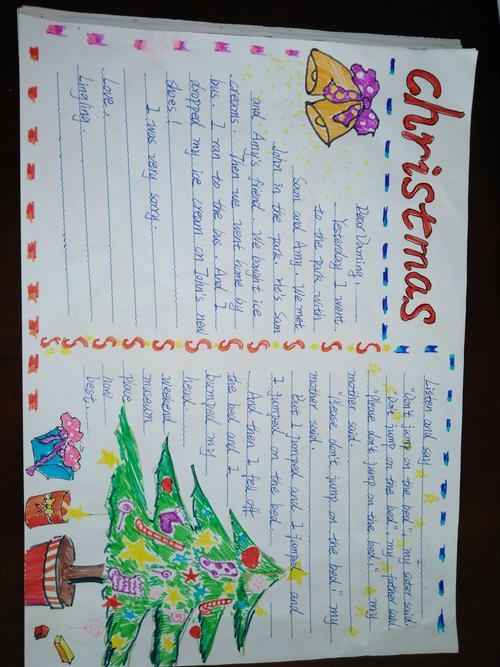 christmas
Dear Daming,
Yesterday I went
to the park with
Sam and Amy. We met
John in the park. He's Sam
and Amy's friend. We bought ice
creams. Then we went home by
bus. I ran to the bus. And I
dropped my ice cream on John's new
shoes!
I was very sorry.
Love,
Lingling
Listen and say
"Don't jump on the bed", my sister said.
"Don't jump on the bed", my father said.
"Please don't jump on the bed," my
mother said.
"Please don't jump on the bed," my
mother said.
But I jumped and I jumped and
I jumped on the bed.
And then I fell off
the bed and I
bumped my
head
weekend
museum
place
how
best